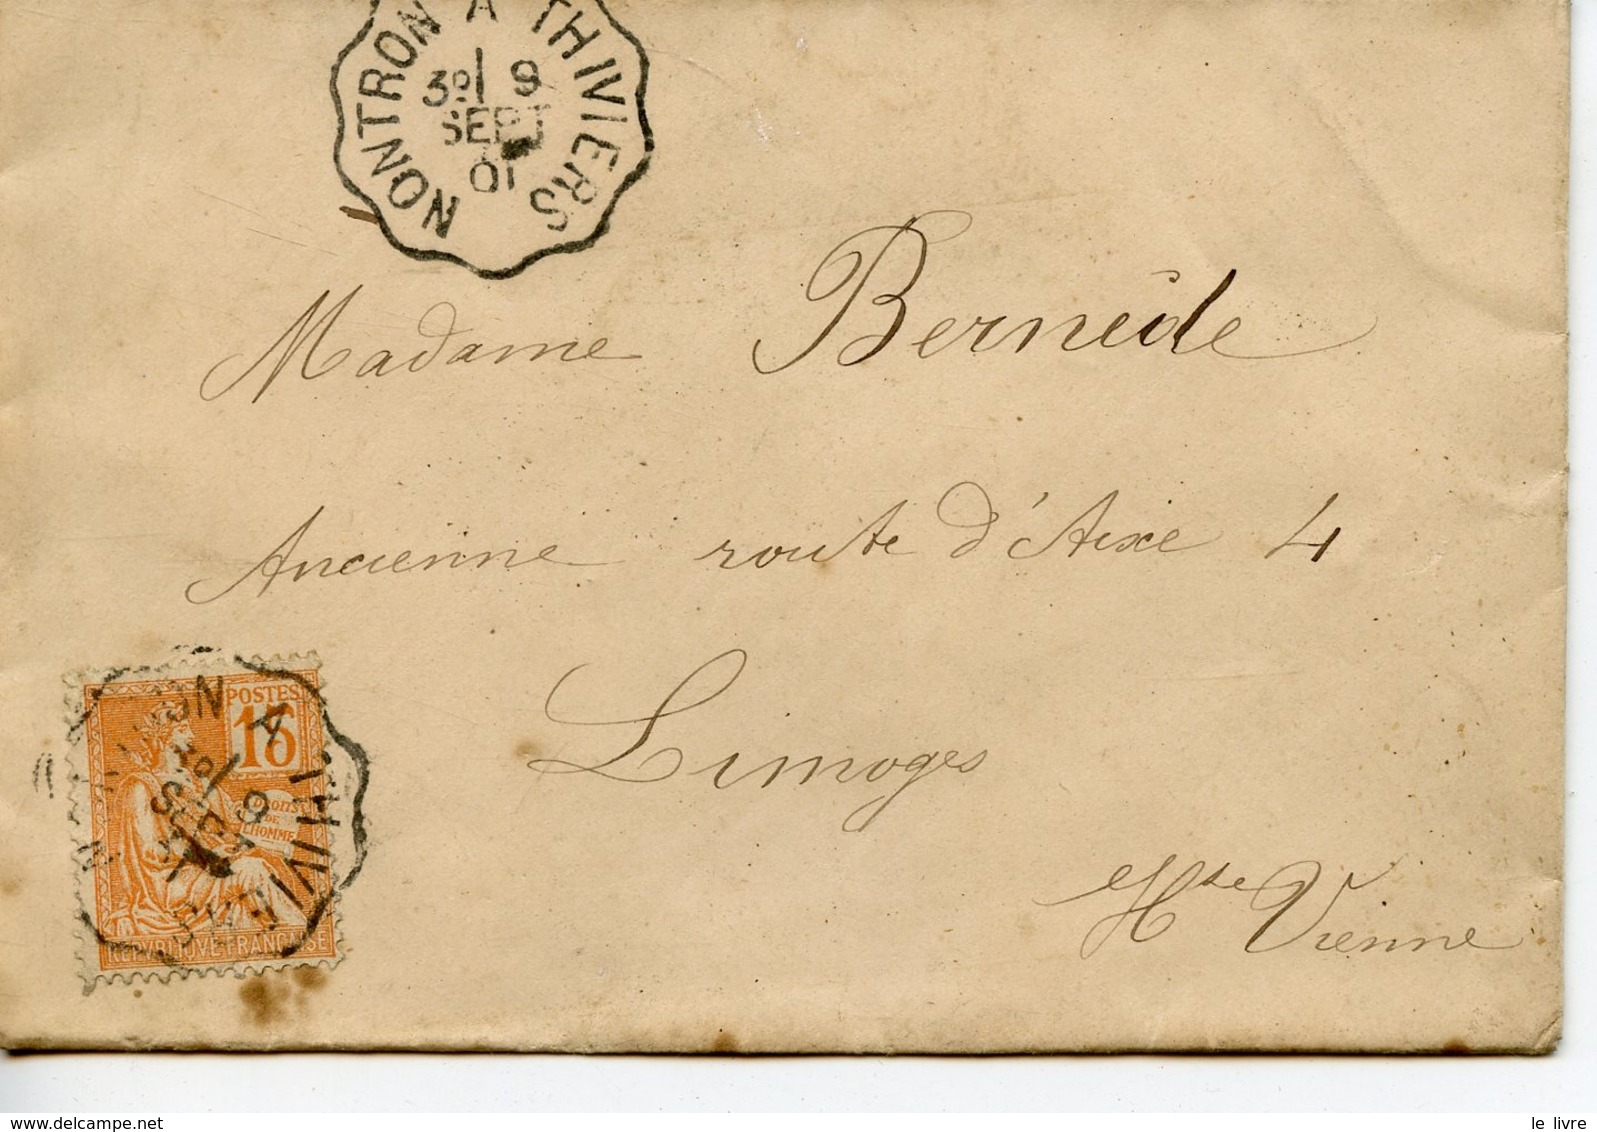 NONTRON A THIVIERS
3º 9
SEPT
01
Madame Bernède
Ancienne route d'Aixe 4
Limoges
Hte Vienne
POSTES
15
DROITS
DE
L'HOMME
REPVBLIQVE FRANÇAISE
A THIVIERS
3º 9
SEPT
delcampe.net
le livre